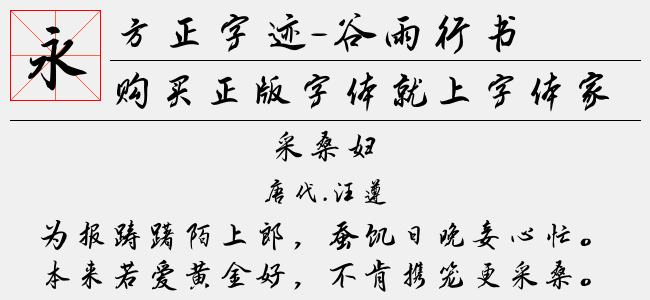 永
方正字迹-谷雨行书
购买正版字体就上字体家
采桑妇
唐代.汪遵
为报踌躇陌上郎，蚕饥日晚妾心忙。
本来若爱黄金好，不肯携笼更采桑。